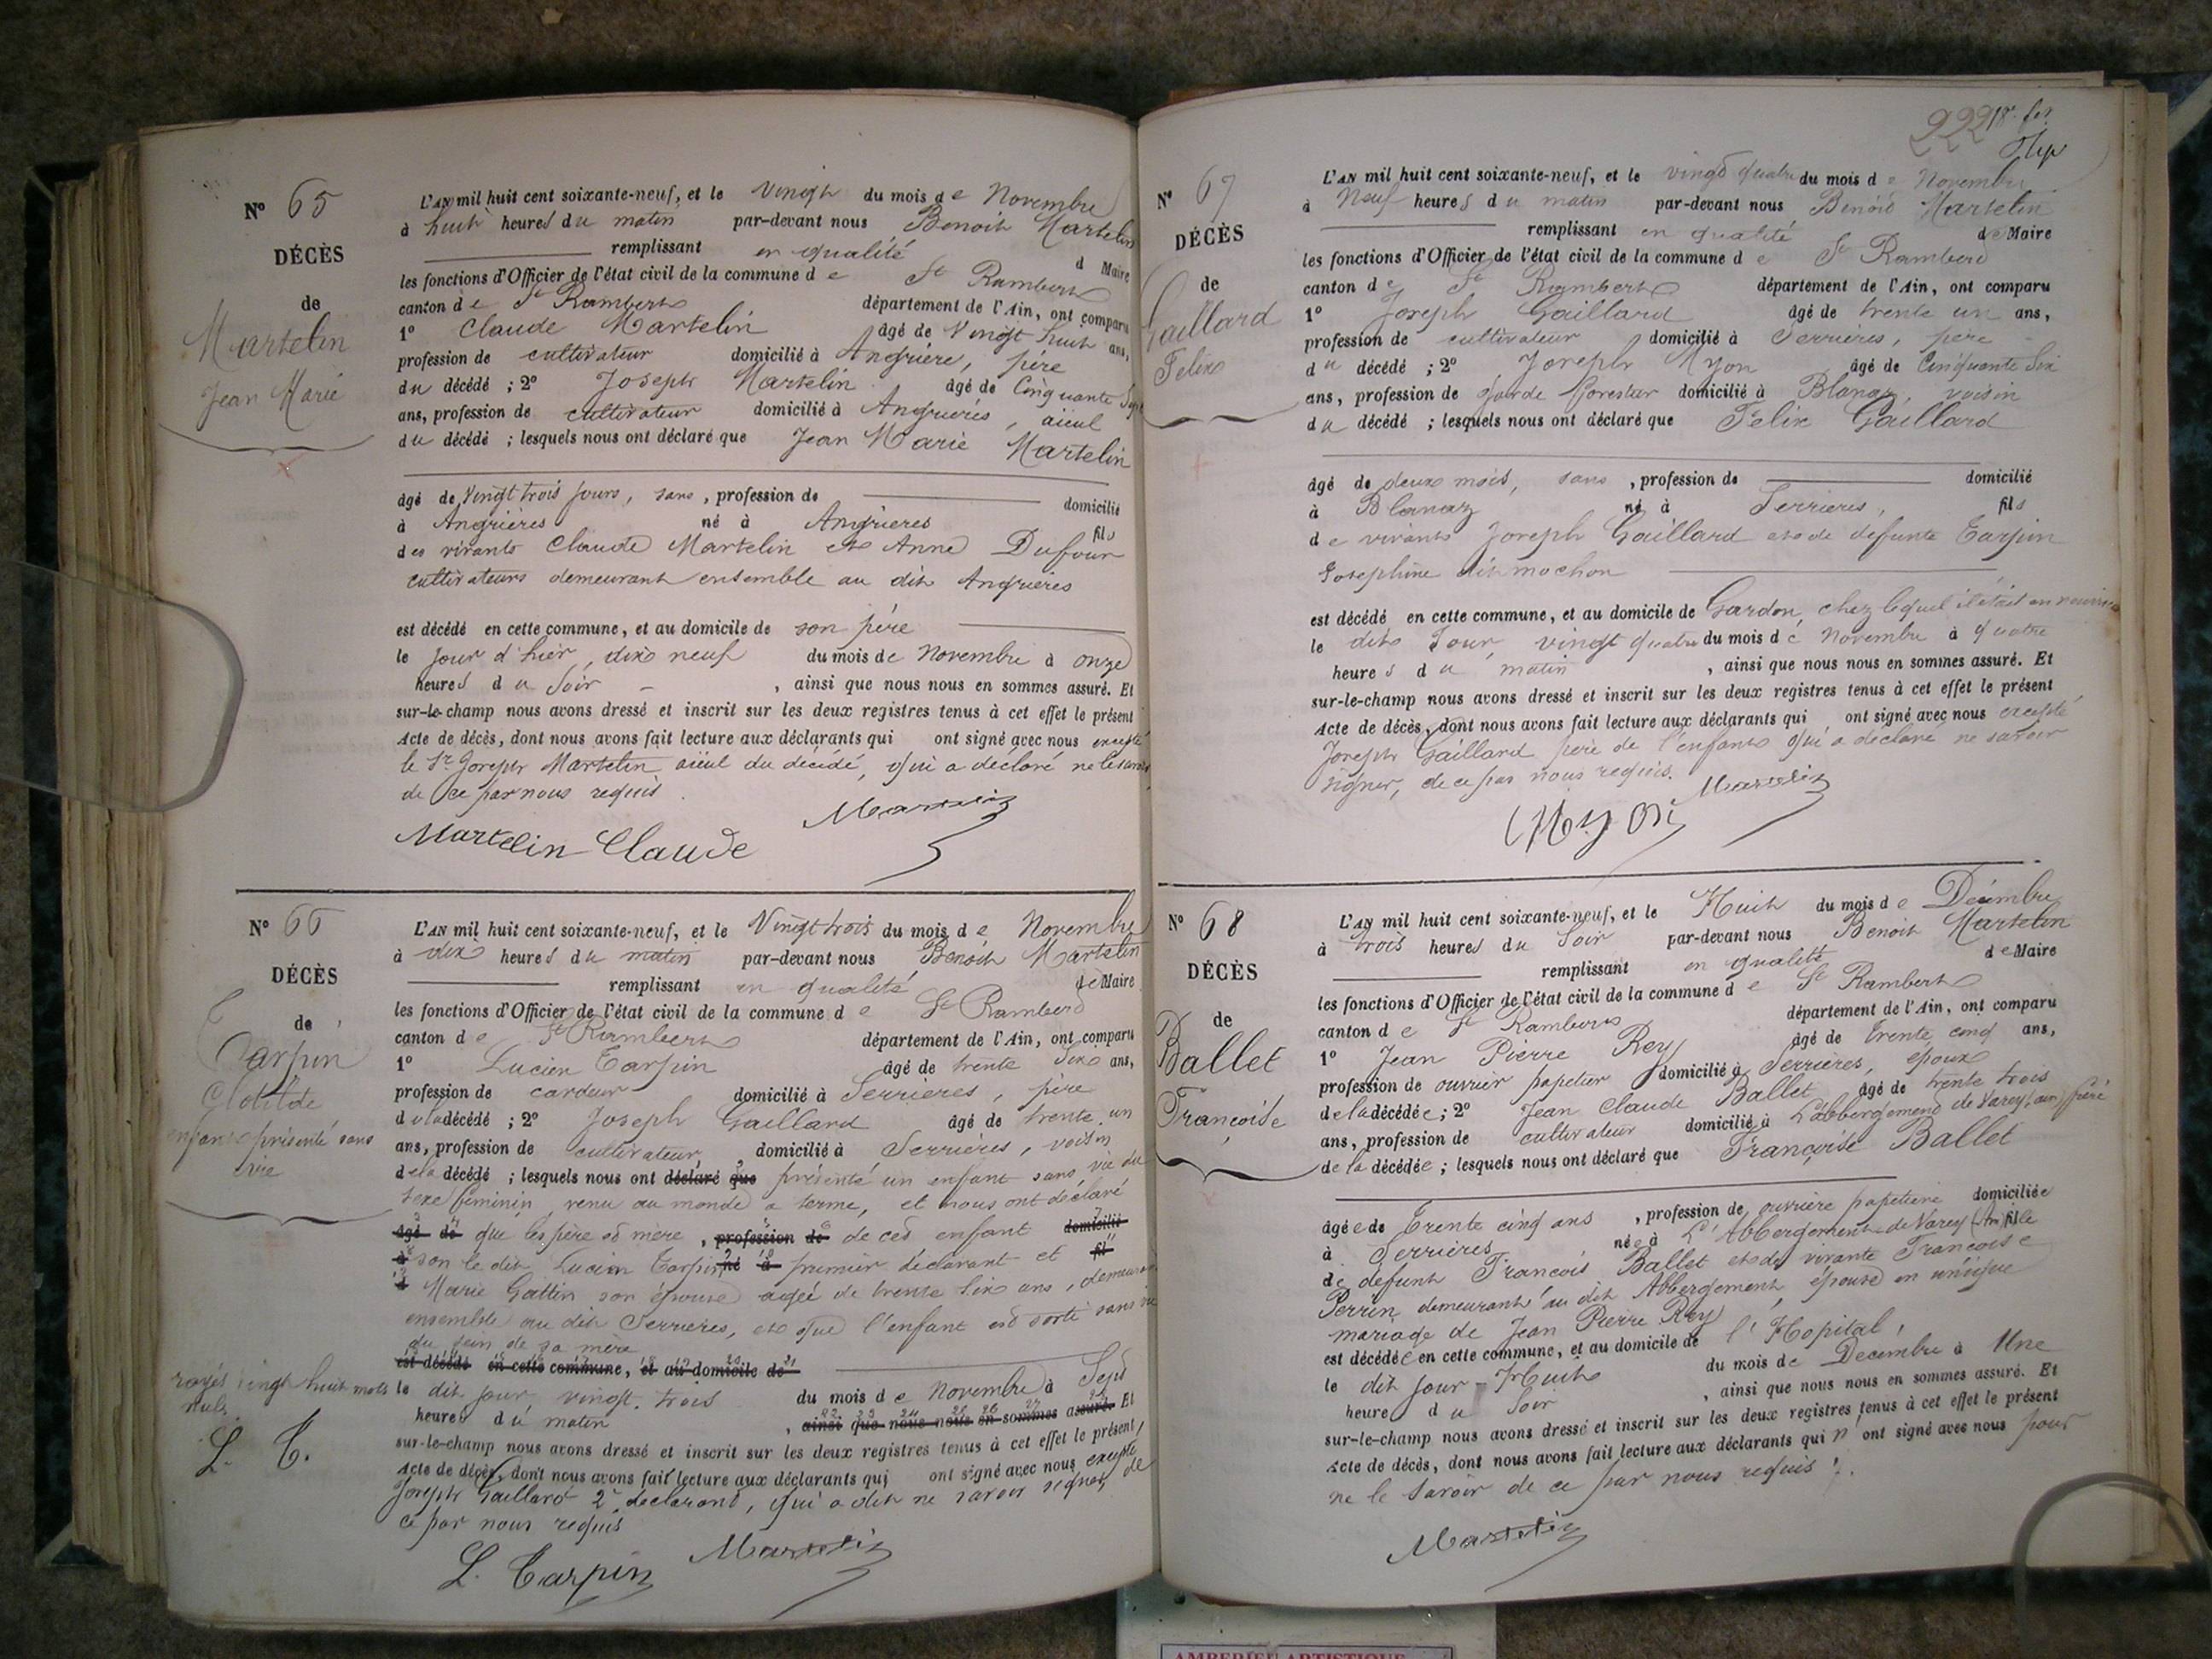 Nº 65
DÉCÈS
de
Martelin
Jean Marie
L'AN mil huit cent soixante-neuf, et le Vingt du mois de Novembre
à huit heures du matin par-devant nous Benoit Martelin
remplissant en qualité de Maire
les fonctions d'Officier de l'état civil de la commune de St Rambert
canton de St Rambert département de l'Ain, ont comparu
1º Claude Martelin âgé de Vingt huit ans,
profession de cultivateur domicilié à Angrière, père
du décédé ; 2º Joseph Martelin âgé de Cinquante Sept
ans, profession de cultivateur domicilié à Angrieres, aïeul
du décédé ; lesquels nous ont déclaré que Jean Marie Martelin
âgé de Vingt trois jours, sans , profession de domicilié
à Angrières né à Angrieres fils
des vivants Claude Martelin et Anne Dufour
cultivateurs demeurant ensemble au dit Angrieres
est décédé en cette commune, et au domicile de son père
le jour d'hier, dix neuf du mois de Novembre à onze
heures du Soir , ainsi que nous nous en sommes assuré. Et
sur-le-champ nous avons dressé et inscrit sur les deux registres tenus à cet effet le présent
Acte de décès, dont nous avons fait lecture aux déclarants qui ont signé avec nous excepté
le Sr Joseph Martelin aieul du décédé, qui a déclaré ne le savoir
de ce par nous requis
Martelin Claude Martelin
Nº 66
DÉCÈS
de
Tarpin
Clotilde
enfant présenté sans
vie
L'AN mil huit cent soixante-neuf, et le Vingt trois du mois de Novembre
à dix heures du matin par-devant nous Benoit Martelin
remplissant en qualité de Maire
les fonctions d'Officier de l'état civil de la commune de St Rambert
canton de St Rambert département de l'Ain, ont comparu
1º Lucien Tarpin âgé de trente Six ans,
profession de cardeur domicilié à Serrières, père
de la décédé ; 2º Joseph Gaillard âgé de trente un
ans, profession de cultivateur, domicilié à Serrières, voisin
de la décédé ; lesquels nous ont déclaré que présenté un enfant sans vie du
sexe féminin, venu au monde a terme, et nous ont déclaré
âgé de que les père et mère , profession de de cet enfant domicilié
à son le dit Lucien Tarpin né à premier déclarant et fil
d Marie Gattin son épouse agée de trente Six ans, demeurant
ensemble au dit Serrieres, et que l'enfant est sorti sans vie
du sein de sa mère
est décédé en cette commune, et au domicile de
rayés vingt huit mots
nuls
L. T.
le dit jour vingt trois du mois de Novembre à Sept
heures du matin , ainsi que nous nous en sommes assuré. Et
sur-le-champ nous avons dressé et inscrit sur les deux registres tenus à cet effet le présent,
Acte de décès, dont nous avons fait lecture aux déclarants qui ont signé avec nous excepté
Joseph Gaillard 2e déclarant, qui a dit ne savoir signer de
ce par nous requis
L. Tarpin Martelin
222 18e fet
Nº 67
DÉCÈS
de
Gaillard
Felix
L'AN mil huit cent soixante-neuf, et le vingt quatre du mois de Novembre
à Neuf heures du matin par-devant nous Benoit Martelin
remplissant en qualité de Maire
les fonctions d'Officier de l'état civil de la commune de St Rambert
canton de St Rambert département de l'Ain, ont comparu
1º Joseph Gaillard âgé de trente un ans,
profession de cultivateur domicilié à Serrières, père
du décédé ; 2º Joseph Myon âgé de Cinquante Six
ans, profession de garde forestier domicilié à Blanaz, voisin
du décédé ; lesquels nous ont déclaré que Félix Gaillard
âgé de deux mois, sans , profession de domicilié
à Blanaz né à Serrieres, fils
de vivant Joseph Gaillard et de defunte Tarpin
Josephine dit mochon
est décédé en cette commune, et au domicile de Gardon, chez lequel il était en nourrice
le dit Jour, vingt quatre du mois de Novembre à quatre
heures du matin , ainsi que nous nous en sommes assuré. Et
sur-le-champ nous avons dressé et inscrit sur les deux registres tenus à cet effet le présent
Acte de décès, dont nous avons fait lecture aux déclarants qui ont signé avec nous excepté
Joseph Gaillard père de l'enfant qui a déclaré ne savoir
signer, de ce par nous requis. Martelin
Myon
Nº 68
DÉCÈS
de
Ballet
Françoise
L'AN mil huit cent soixante-neuf, et le Huit du mois de Décembre
à trois heures du Soir par-devant nous Benoit Martelin
remplissant en qualité de Maire
les fonctions d'Officier de l'état civil de la commune de St Rambert
canton de St Rambert département de l'Ain, ont comparu
1º Jean Pierre Rey âgé de trente cinq ans,
profession de ouvrier papetier domicilié à Serrières, époux
de la décédée ; 2º Jean Claude Ballet âgé de trente trois
ans, profession de cultivateur domicilié à L'abbergement de Varey (ain) frère
de la décédée ; lesquels nous ont déclaré que Françoise Ballet
âgée de Trente cinq ans , profession de ouvriere papetiere domiciliée
à Serrières née à L'Abbergement de Varey (Ain) fille
de defunt François Ballet et de vivante Françoise
Perrin demeurant au dit Abbergement, épouse en unique
mariage de Jean Pierre Rey
est décédée en cette commune, et au domicile de l'Hopital,
le dit jour Huit du mois de Decembre à Une
heure du Soir , ainsi que nous nous en sommes assuré. Et
sur-le-champ nous avons dressé et inscrit sur les deux registres tenus à cet effet le présent
Acte de décès, dont nous avons fait lecture aux déclarants qui n'ont signé avec nous pour
ne le savoir de ce par nous requis.
Martelin
AMBERIEU ARTISTIQUE